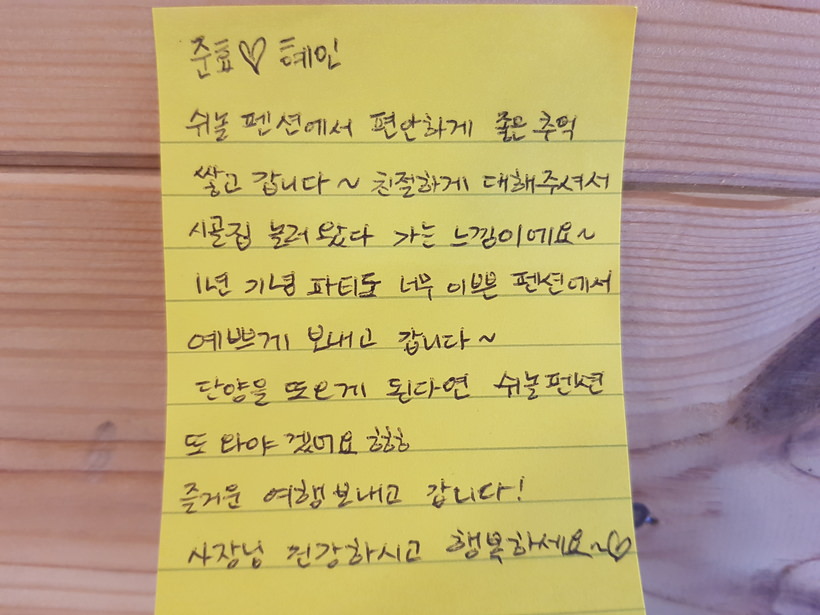 준효♡ 혜인
쉬놀 펜션에서 편안하게 좋은 추억
쌓고 갑니다~ 친절하게 대해주셔서
시골집 놀러 왔다 가는 느낌이에요~
1년 기념 파티도 너무 이쁜 펜션에서
예쁘게 보내고 갑니다~
단양을 또 오게 된다면 쉬놀펜션
또 와야 겠어요 ㅎㅎㅎ
즐거운 여행 보내고 갑니다!
사장님 건강하시고 행복하세요~♡